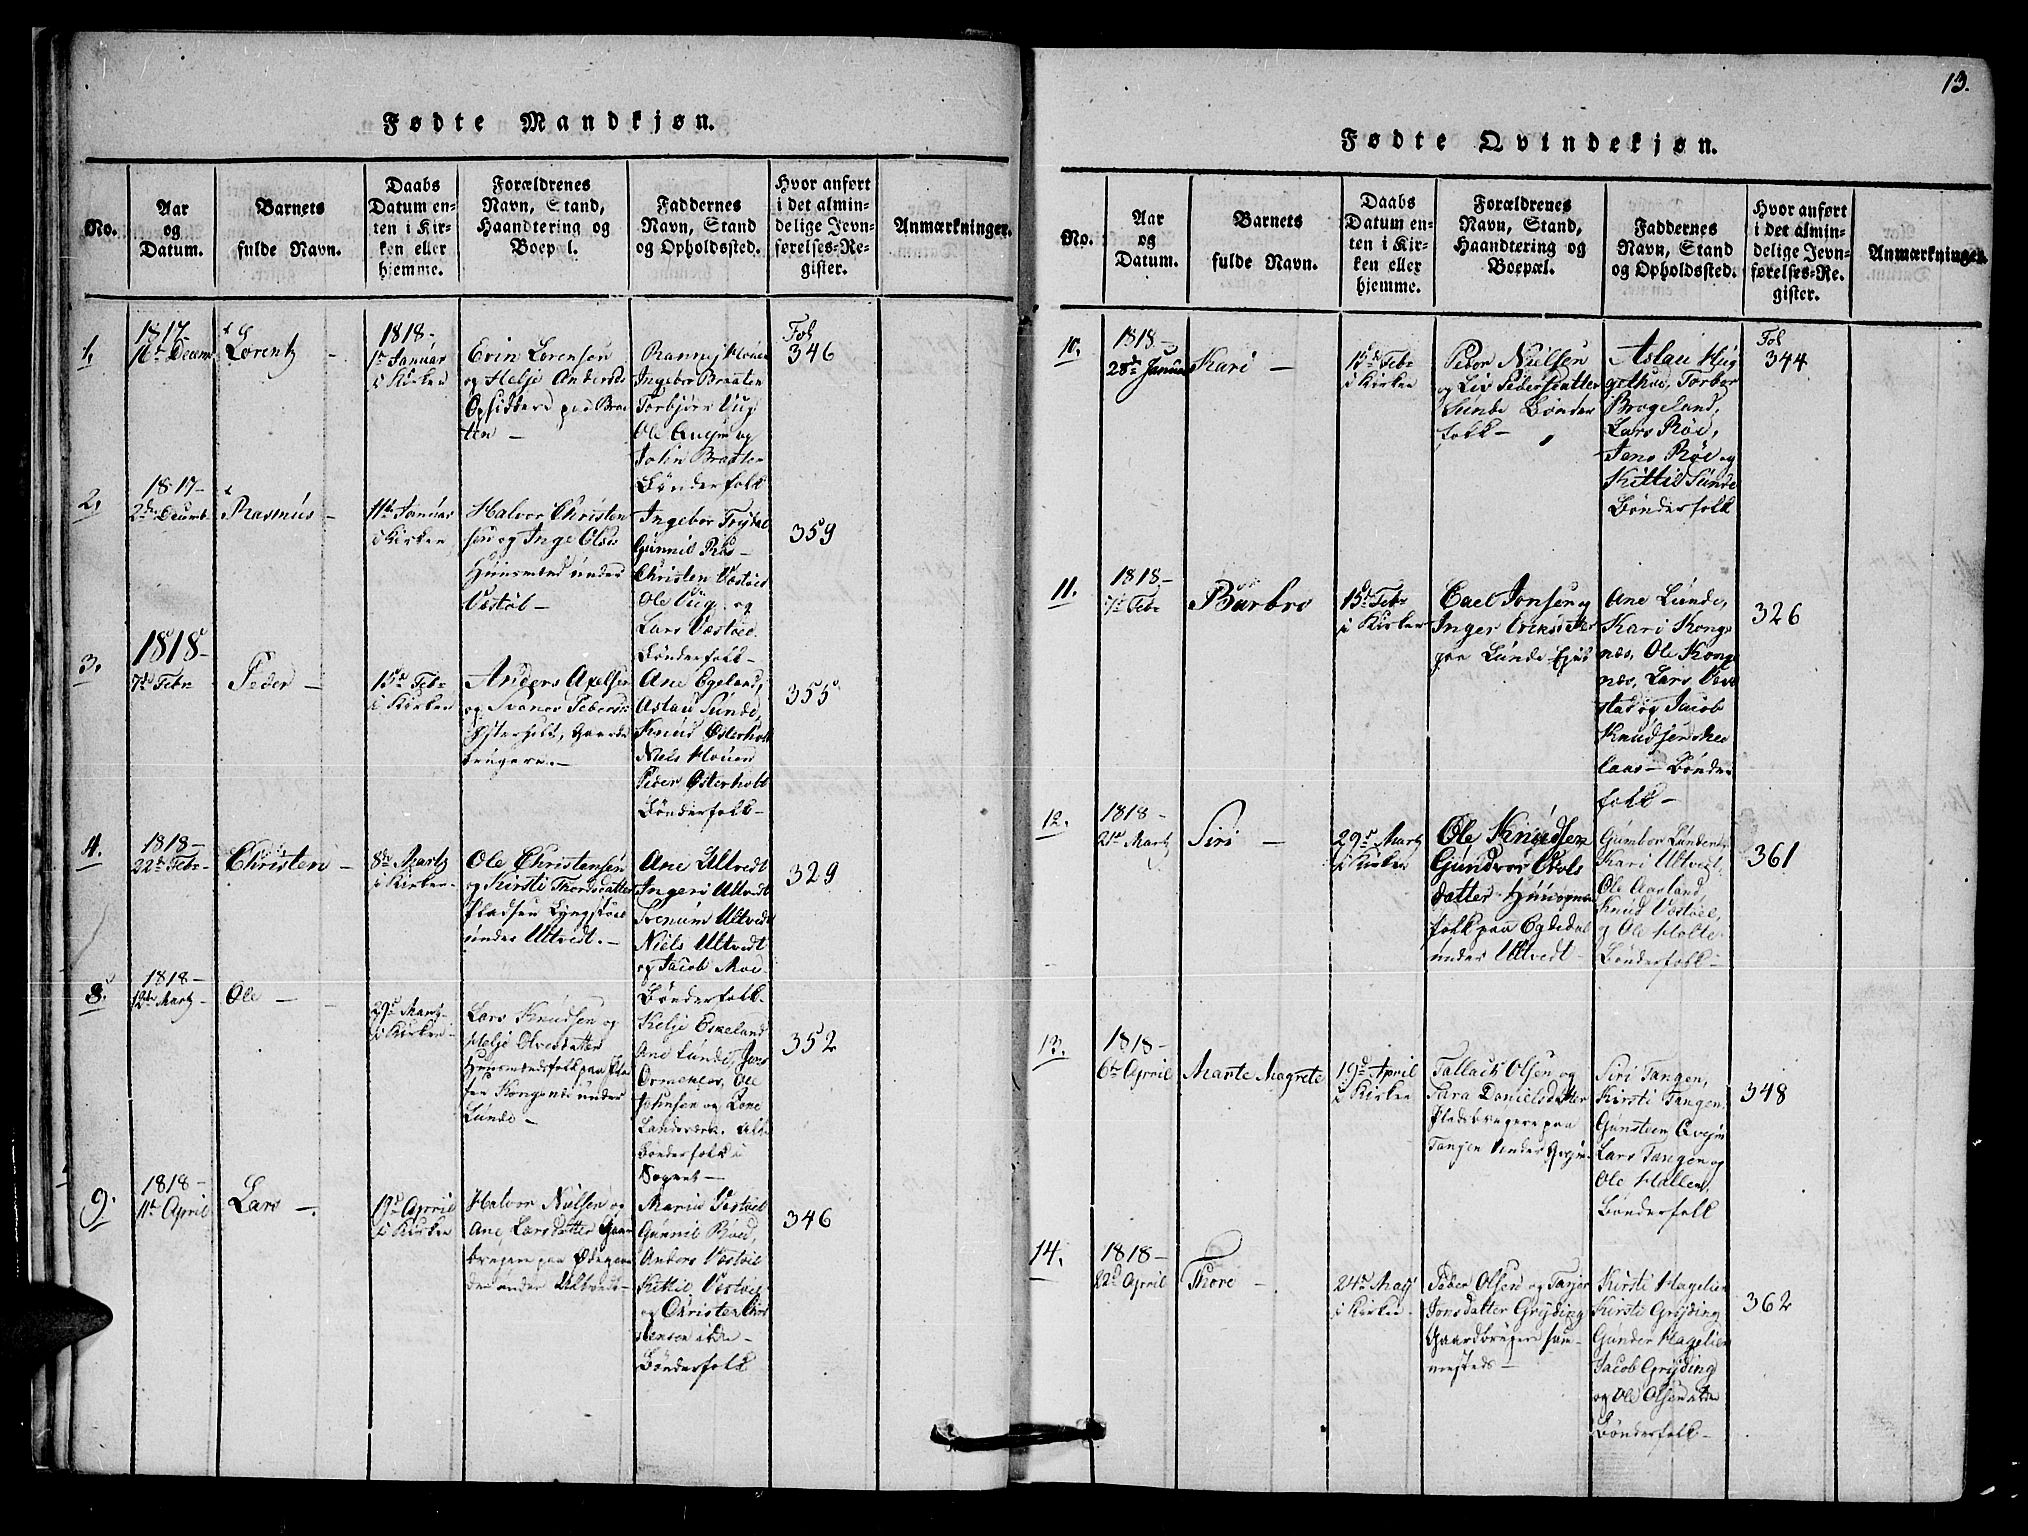 13.
Fødte Mandkjøn.
No.
Aar
og
Datum.
Barnets
fulde Navn.
Daabs
Datum en-
ten i Kir-
ken eller
hjemme.
Forældrenes
Navn, Stand,
Haandtering og
Boepæl.
Faddernes
Navn, Stand
og Opholdssted.
Hvor anført
i det almin-
delige Jevn-
førelses-Re-
gister.
Anmærkninger.
1.
1817-
16de Decembr
Lorentz -
1818-
1te Januar
i Kirken
Evin Lorensøn
og Helje Andersd:
Opsiddere paa Braa-
ten -
Ingebor Braaten
Torbjørn Vug
Ole Quejm og
John Braaten
Bønderfolk
Fol
346
2.
1817-
2den Decemb
Rasmus -
11te Januar
i Kirken
Halvor Christen
sen og Inge Olsd:
Huusmænd under
Væstøl -
Ingebor Frydal
Gunnil Røs -
Christen Væstøel
Ole Vug og
Lars Væstøel
Bønderfolk -
359
3.
1818-
7de Febr
Peder -
15de Febr
i Kirken
Anders Axelsen
og Svanev Pedersd:
Østerholt, Gaard-
brugere. -
Ane Egeland,
Aslau Sunde,
Knud Østerholt
Niels Houen
Peder Østerholt
Bønderfolk -
355
4.
1818-
22de Febr-
Christen -
8de Martz
i Kirken -
Ole Christensen
og Kirsti Thordsdatter
Pladsen Lyngstøel
under Ultvedt. -
Ane Ultvedt
Ingeri Ultvedt
Grenum Ultvedt
Niels Ultvedt
og Jacob Moe
Bønderfolk.
329
8.
1818-
12te Martz-
Ole -
29de Martz-
i Kirken -
Lars Knudsen og
Helje Olvesdatter
Huusmandsfolk paa Pla-
sen Kongsnæs under
Lunde -
Kelje Eskeland
Ane Lunde, Jens
Ormekleo, Ole
Johnsen og Lone
Landsværk. alle
Bønderfolk i
Sognet -
352
9.
1818-
11te April
Lars -.
19de April
i Kirken
Halvor Nielsen og
Ane Larsdatter Gaard
brugere paa Ødegaar
den under Ultvedt -
Maria Væstøel
Gunnil Røed,
Anders Væstøel
Kittil Væstøel
og Christen Chri
stensen alle -
Bønderfolk
346
Fødte Qvindekjøn.
No.
Aar
og
Datum.
Barnets
fulde Navn.
Daabs
Datum en-
ten i Kir-
ken eller
hjemme.
Forældrenes
Navn, Stand,
Haandtering og
Boepæl.
Faddernes
Navn, Stand
og Opholdssted.
Hvor anført
i det almin-
delige Jevn-
førelses-Re-
gister.
Anmærkninger.
10.
1818-
28de Januar
Kari -
15de Febr
i Kirken
Peder Nielsen
og Liv Pedersdatter
Sunde Bønder
folk -
Aslau Hug
gethue, Torbor
Brogeland,
Lars Røe,
Jens Røe og
Kittil Sunde
Bønderfolk
Fol
344
11.
1818-
7de Febr
Barbro
15de Febr
i Kirken
Cael Jonsen og
Inger Eriksdatter
paa Lunde Ejes
Ane Lunde,
Kari Kongs
næs, Ole Kongs
næs, Lars Væv
stad og Jacob
Knudsen Mee
laas - Bønder
folk -
326
12.
1818-
21de Martz
Siri -
29de Martz
i Kirken
Ole Knudsen
Gundvor Olvls
datter Huusmands
folk paa Egdedal
under Ultvedt -
Gumbor Lunden
Kari Ultvedt,
Ole Aasland,
Knud Væstøel,
og Ole Holte
Bønderfolk -
361
13.
1818-
6te April
Marte Magrete
19de April
i Kirken
Tallack Olsen og
Sara Danielsdatter
Pladsbrugere paa
Tangen under Quejm -
Siri Tangen,
Kirsti Tangen,
Gunsteen Qvejm
Lars Tangen og
Ole Hallen,
Bønderfolk
348
14.
1818-
22de April
Thore -
24de Maj
i Kirken -
Peder Olsen og Tarjer
Jonsdatter Gryding
Gaardbrugere sam-
mesteds -
Kirsti Hagelien
Kirsti Gryding
Gunder Hagelien
Jacob Gryding
og Ole Olsen alle
Bønderfolk -
362